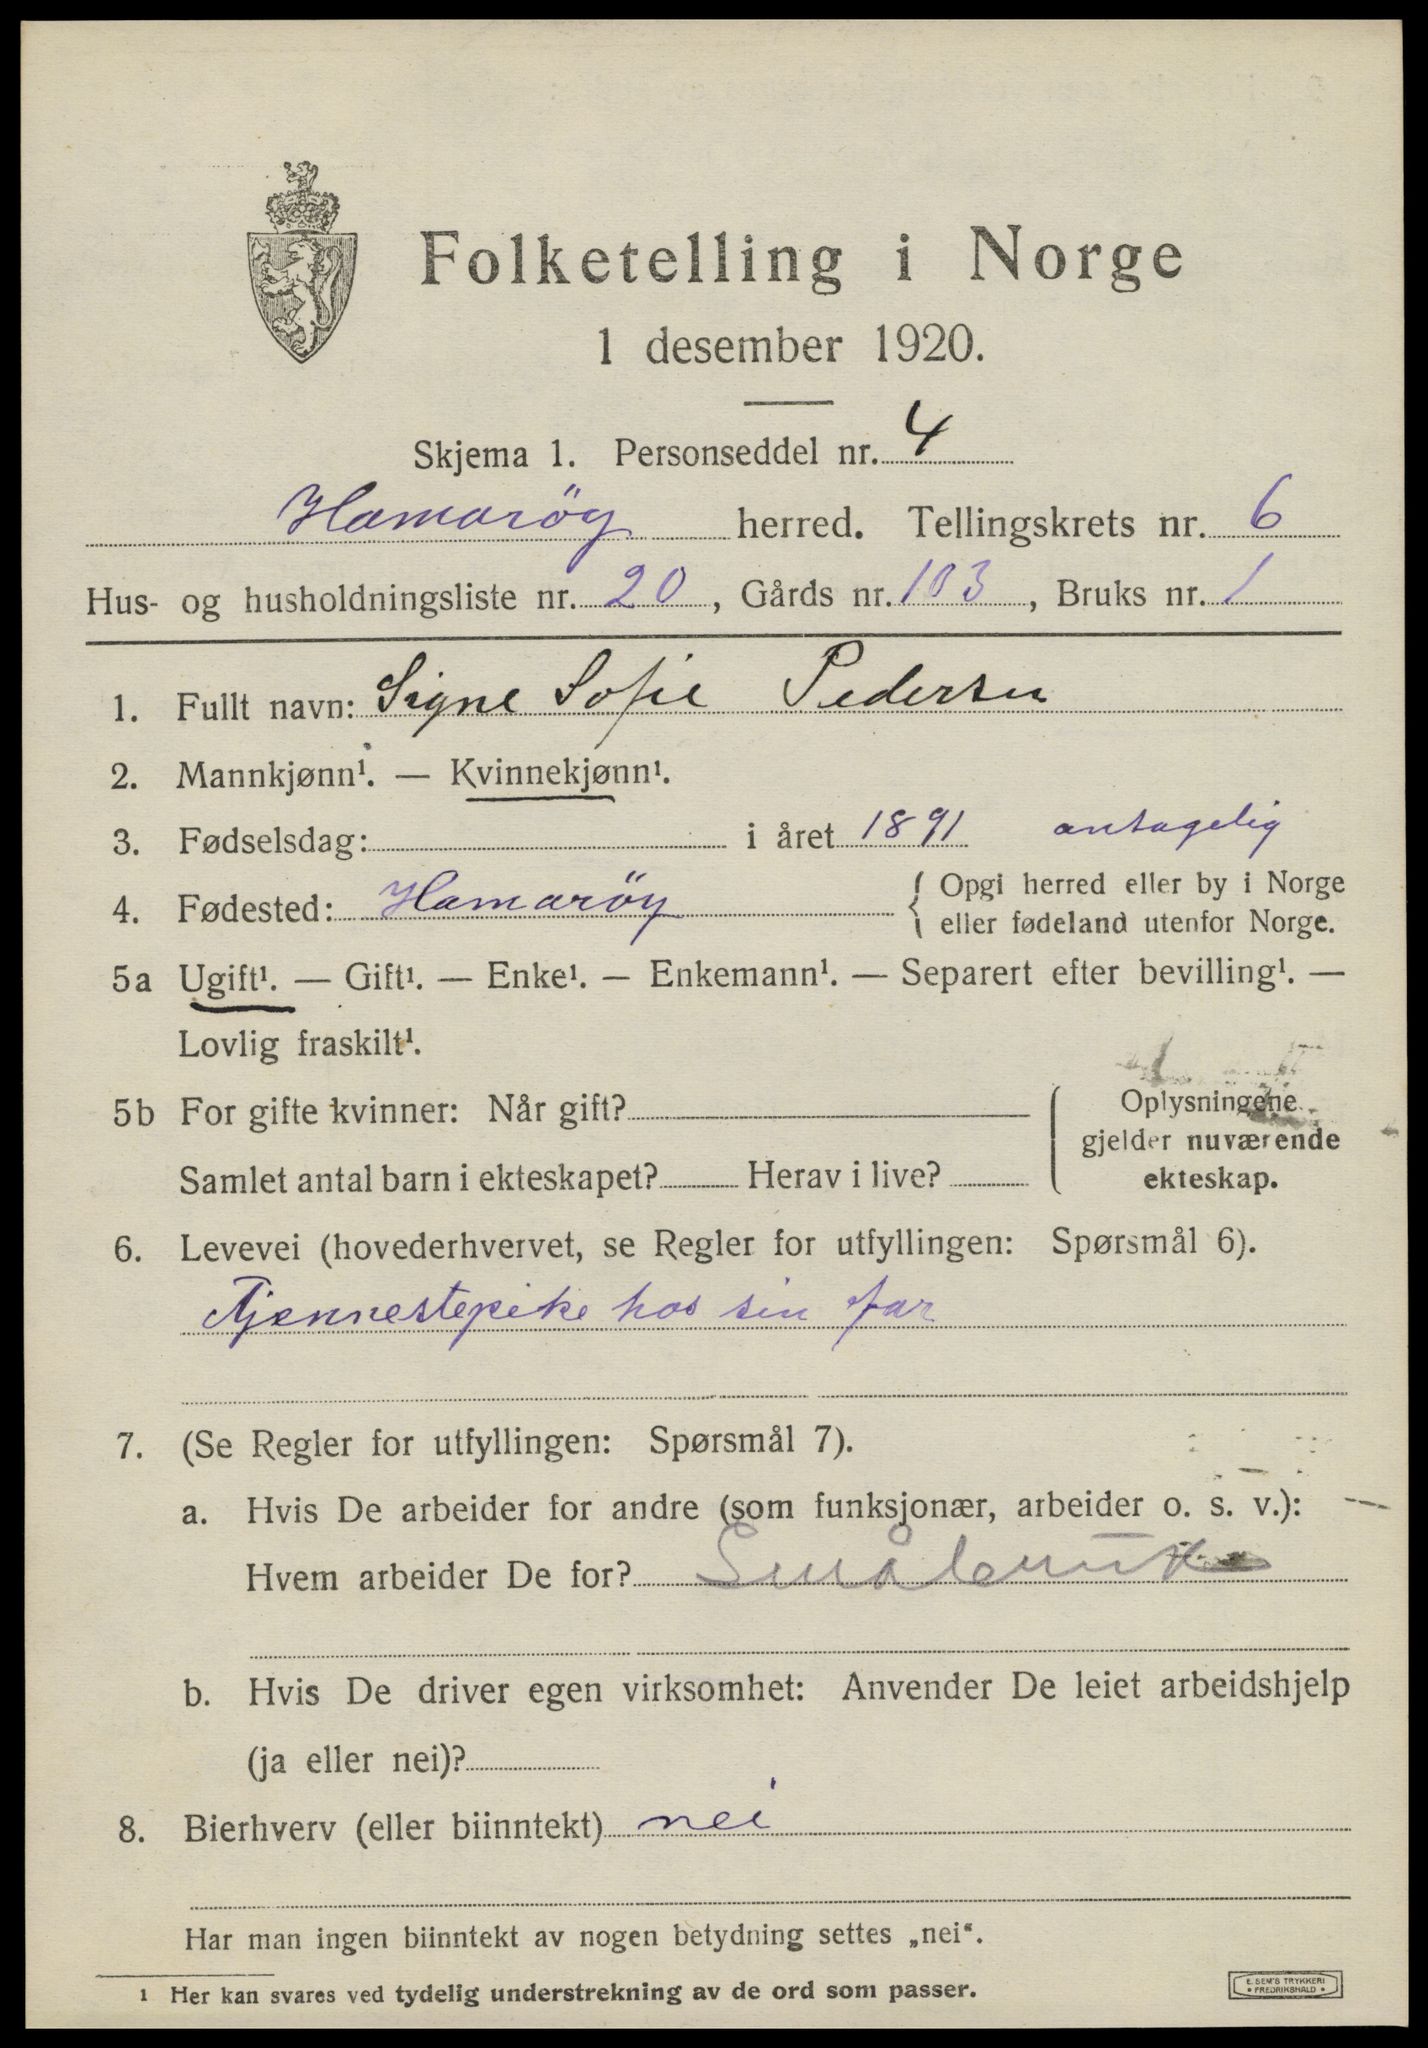 Folketelling i Norge
1 desember 1920.
Skjema 1. Personseddel nr. 4
Hamarøy herred. Tellingskrets nr. 6
Hus- og husholdningsliste nr. 20, Gårds nr. 103, Bruks nr. 1
1. Fullt navn: Signe Sofie Pedersen
2. Mannkjønn¹. — Kvinnekjønn¹.
3. Fødselsdag: i året 1891 antagelig
4. Fødested: Hamarøy { Opgi herred eller by i Norge
eller fødeland utenfor Norge.
5a Ugift¹. — Gift¹. — Enke¹. — Enkemann¹. — Separert efter bevilling¹. —
Lovlig fraskilt¹.
5b For gifte kvinner: Når gift?
Samlet antal barn i ekteskapet? Herav i live?
Oplysningene
gjelder nuværende
ekteskap.
6. Levevei (hovederhvervet, se Regler for utfyllingen: Spørsmål 6).
Tjennestepike hos sin far
7. (Se Regler for utfyllingen: Spørsmål 7).
a. Hvis De arbeider for andre (som funksjonær, arbeider o. s. v.):
Hvem arbeider De for? Småbruk
b. Hvis De driver egen virksomhet: Anvender De leiet arbeidshjelp
(ja eller nei)?
8. Bierhverv (eller biinntekt) nei
Har man ingen biinntekt av nogen betydning settes „nei“.
1 Her kan svares ved tydelig understrekning av de ord som passer.
E. SEM'S TRYKKERI
• FREDRIKSHALD •